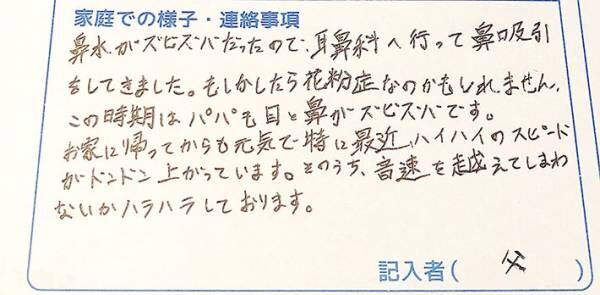 家庭での様子・連絡事項
鼻水がズビズバだったので、耳鼻科へ行って鼻吸引
をしてきました。もしかしたら花粉症なのかもしれません。
この時期はパパも目と鼻がズビズバです。
お家に帰ってからも元気で特に最近、ハイハイのスピード
がドンドン上がっています。そのうち、音速を越えてしまわ
ないかハラハラしております。
記入者(父)